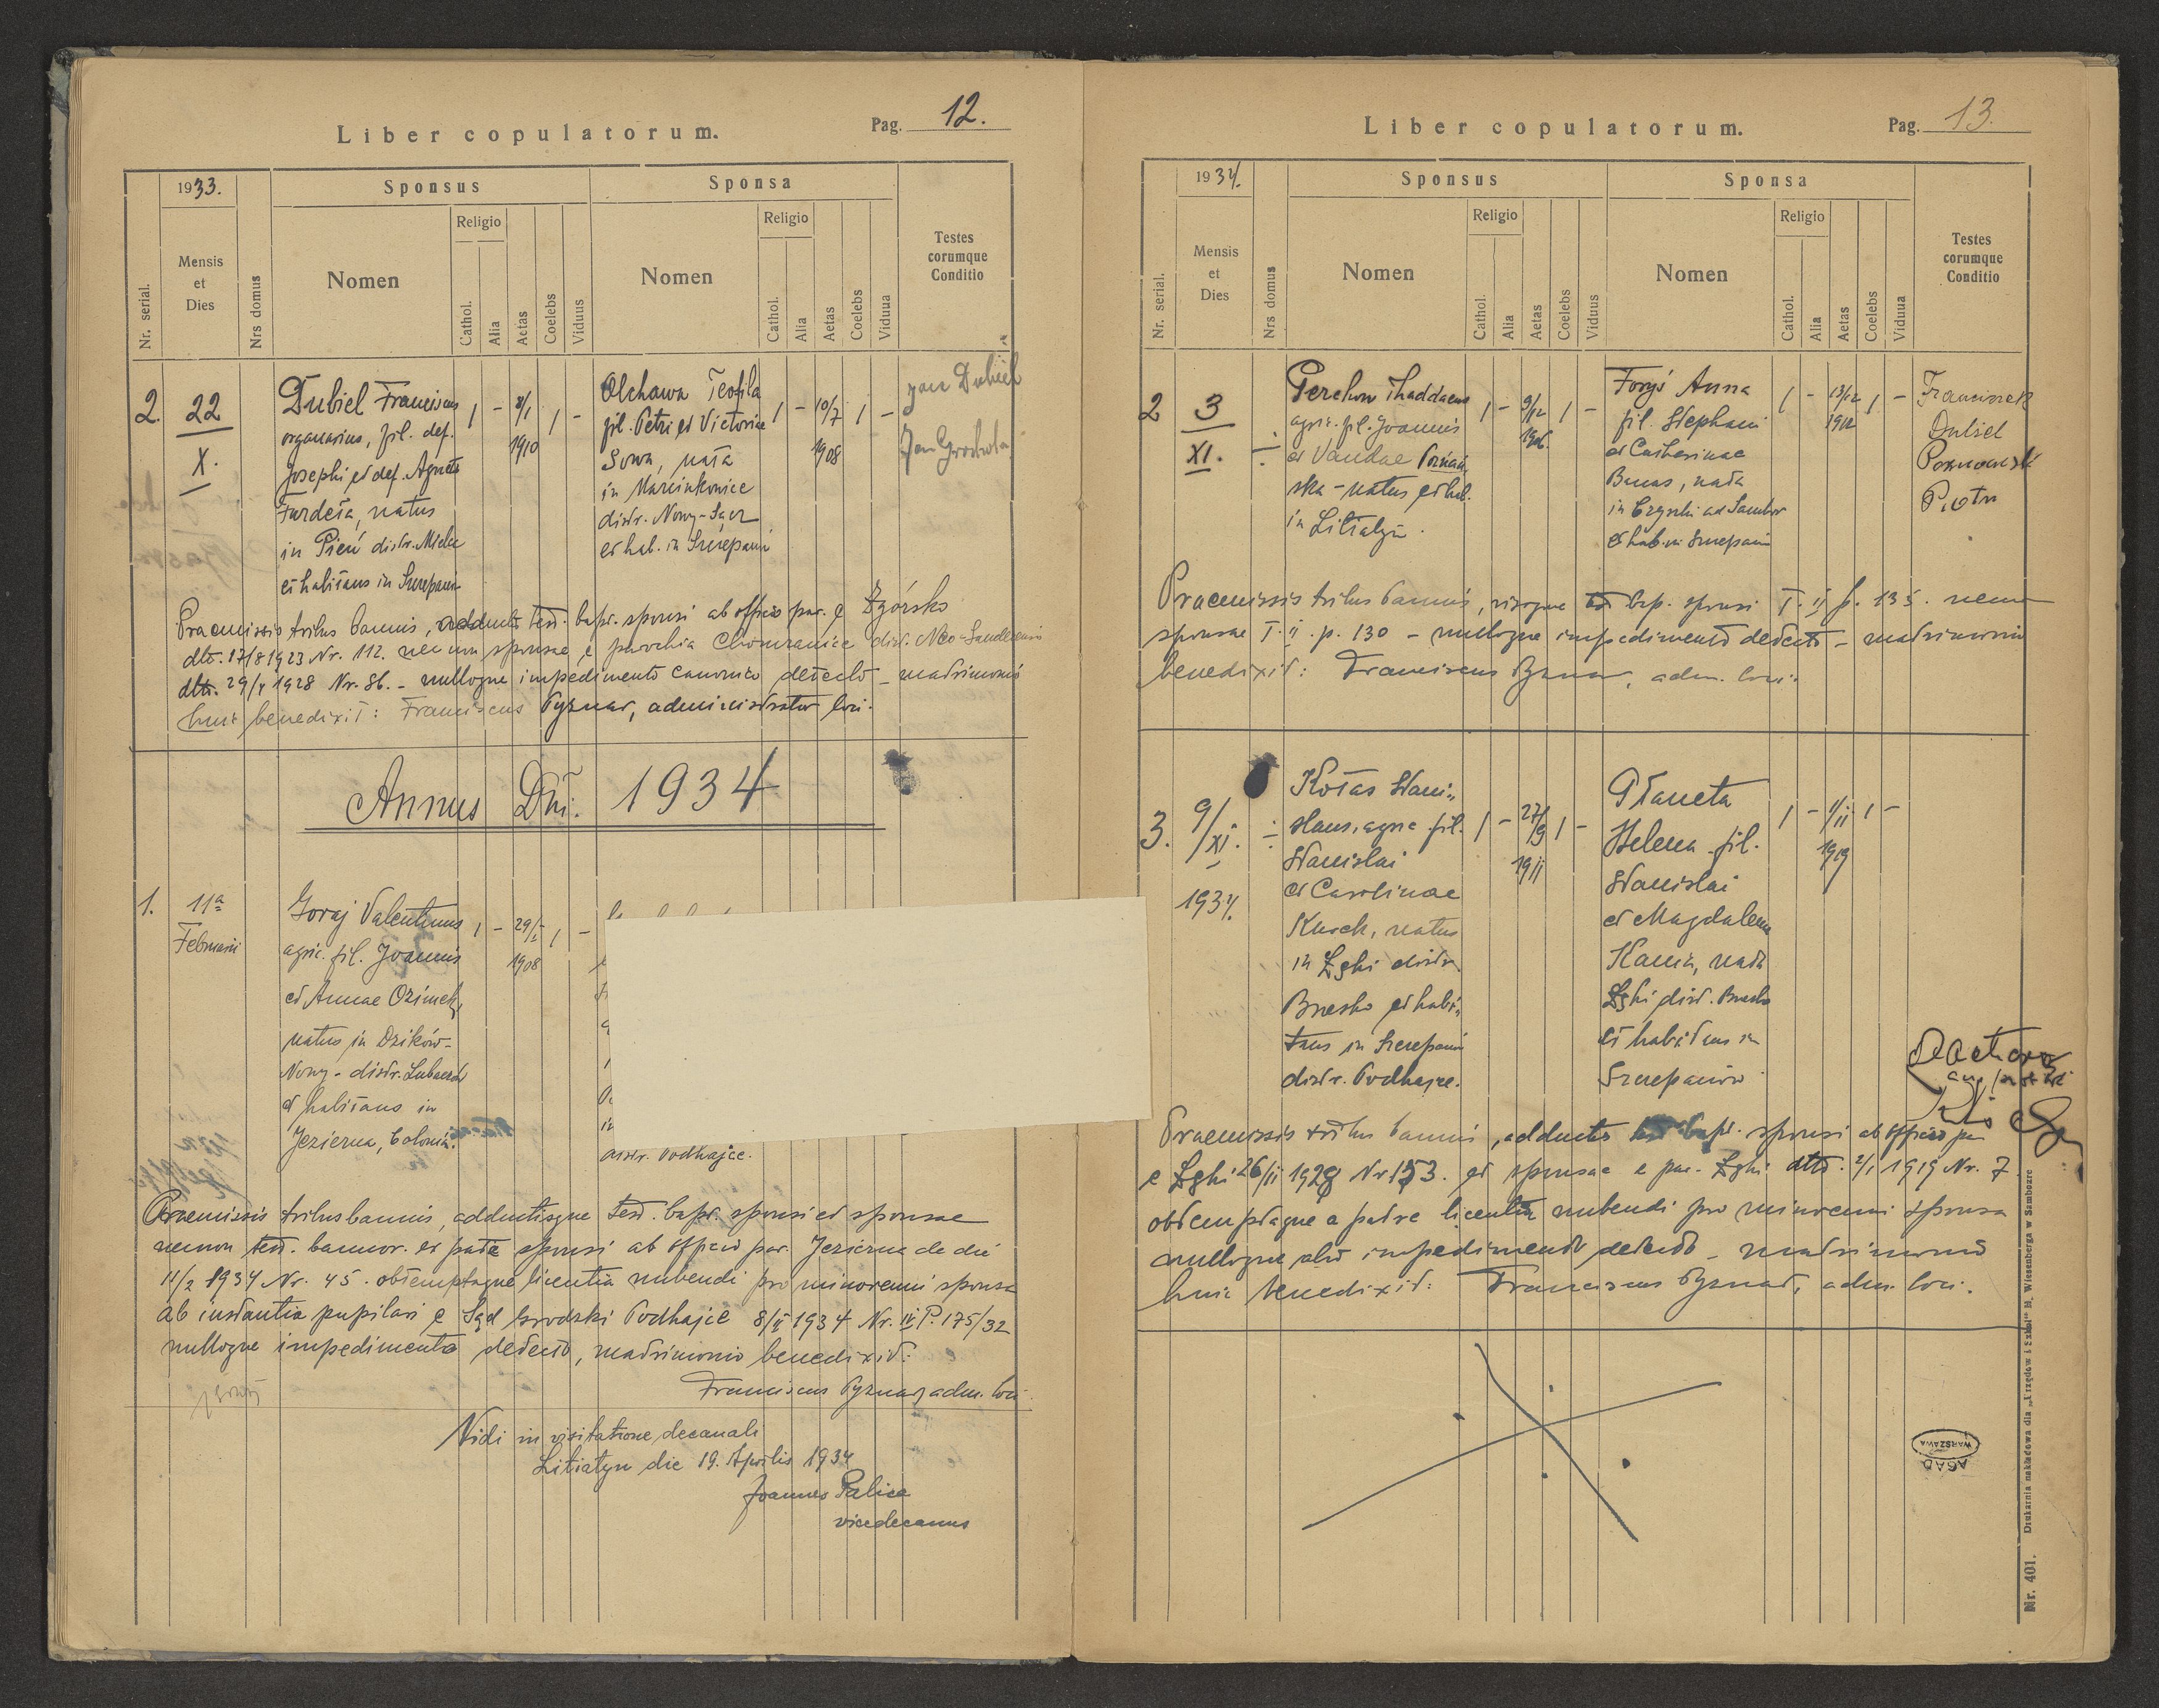 Liber copulatorum.
Pag. 12.
1933.
Sponsus
Sponsa
Nr. serial.
Mensis
et
Dies
Nrs domus
Nomen
Religio
Cathol.
Alia
Aetas
Coelebs
Viduus
Nomen
Religio
Cathol.
Alia
Aetas
Coelebs
Vidua
Testes
eorumque
Conditio
2.
22
X.
Dubiel Franciscus
organarius, fil. def.
Josephi et def. Agnetis
natus
in Pień distr. Mielec
et habitans in Szczepanów
1 - 8/1 1 -
1910
Olchawa Teofila
fil. Petri et Victoriae
Sowa, nata
in Marcinkowice
distr. Nowy-Sącz
et hab. in Szczepanów
1 - 10/7 1 -
1908
Jan Dubiel
Jan Grochola
Praemissis tribus bannis, adductis test. bapt. sponsi ab officio par. e Zgórsko
dto. 17/8 1923 Nr. 112. nec non sponsae e parochia Chomranice distr. Neo-Sandecensis
dto. 29/ 1928 Nr. 86. - nulloque impedimento canonico detecto - matrimonio
huic benedixit: Franciscus Pyznar, administrator loci.
Annus Dni. 1934
1.
11a
Februarii
Goraj Valentinus
agric. fil. Joannis
et Annae Ozimek,
natus in Dzików-
Nowy - distr. Lubaczów
et habitans in
Jezierna, Colonia.
1 - 29/I 1 -
1908
distr. Podhajce.
Praemissis tribus bannis, adductisque test. bapt. sponsi et sponsae
necnon test. bannor. ex parte sponsi ab officio par. Jezierna de die
11/2 1934 Nr. 45. obtemptaque licentia nubendi pro minorenni sponsa
ab instantia pupilari e Sąd Grodzki Podhajce 8/II 1934 Nr. III P. 175/32
nulloque impedimento detecto, matrimonio benedixit:
Franciscus Pyznar, adm. loci.
Vidi in visitatione decanali
Litiatyn die 19. Aprilis 1934
Joannes Palica
vicedecanus
Liber copulatorum.
Pag. 13.
1934.
Sponsus
Sponsa
Nr. serial.
Mensis
et
Dies
Nrs domus
Nomen
Religio
Cathol.
Alia
Aetas
Coelebs
Viduus
Nomen
Religio
Cathol.
Alia
Aetas
Coelebs
Vidua
Testes
eorumque
Conditio
2
3
XI.
Thaddaeus
agric. fil. Joannis
et Vandae Poznań
ska - natus et hab.
in Litiatyn.
1 - 9/12 1 -
1906.
Foryś Anna
fil. Stephani
et Catherinae
nata
in ad Sambor
et hab. in Szczepanów
1 - 13/12 1 -
1912
Franciszek
Dubiel
Poznański
Piotr
Praemissis tribus bannis, visoque test. bap. sponsi T. II p. 135. necnon
sponsae T. II. p. 130 - nulloque impedimento detecto - matrimonio
benedixit: Franciscus Pyznar, adm. loci.
3.
9/XI.
1934.
Kotas Stani-
slaus, agric. fil.
Stanislai
et Carolinae
Kusek, natus
in Łęki distr.
Brzesko et habi-
tans in Szczepanów
distr. Podhajce.
1 - 27/9 1 -
1911
Płaneta
Helena fil.
Stanislai
et Magdalena
nata
Łęki distr. Brzesko
et habitans in
Szczepanów
1 - 1/II 1 -
1919
Praemissis tribus bannis, adductis test. bapt. sponsi ab officio par.
e Łęki 26/II 1928 Nr 153. et sponsae e par. Łęki dto. 2/1 1919 Nr. 7.
obtemptaque a patre licentia nubendi pro minorenni sponsa
nulloque alio impedimento detecto - matrimonio
huic benedixit: Franciscus Pyznar, adm. loci.
AGAD
WARSZAWA
Nr. 401. Drukarnia nakładowa dla „Urzędów i Szkół" H. Wiesenberga w Samborze